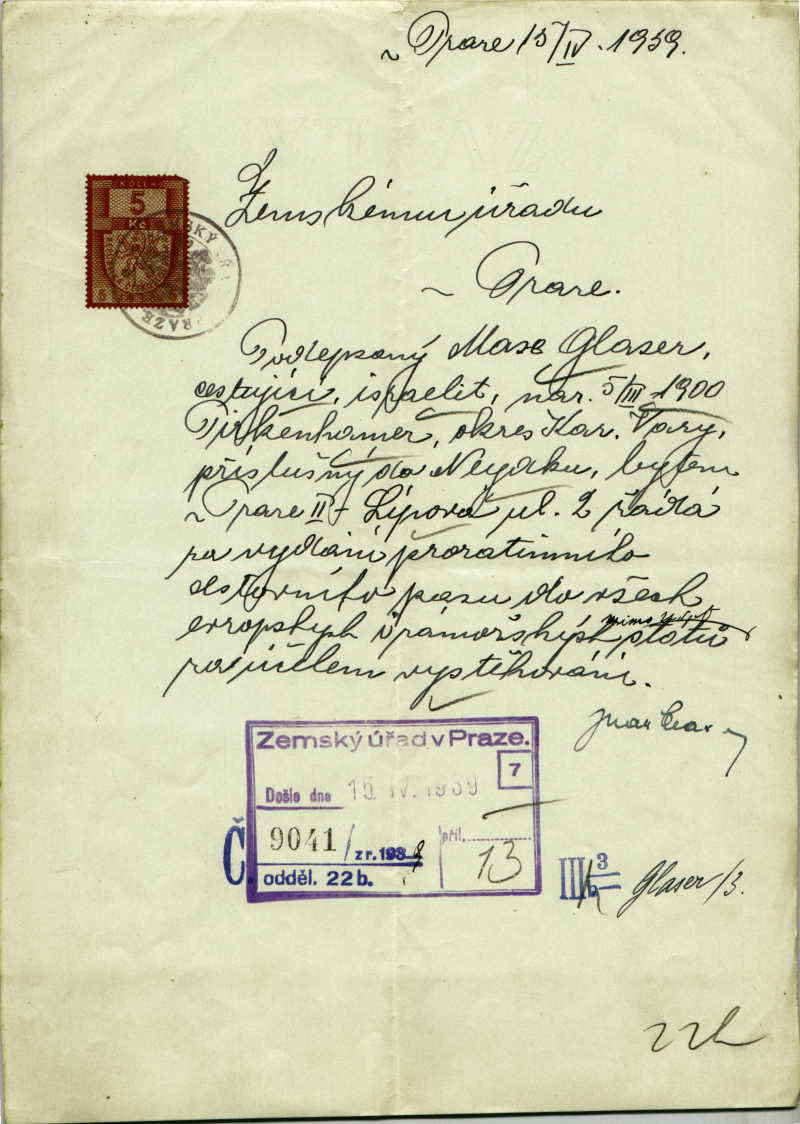 v Praze 15/IV. 1939.
KOLEK
5
Kč
Zemskému úřadu
v Praze.
Podepsaný Max Glaser,
cestující, israelit, nar. 5/III 1900
Pirkenhamer, okres Kar. Vary,
příslušný do Neydku, bytem
v Praze II - Lípová ul. 2 žádá
za vydání prozatimního
cestovního pasu do všech
evropských i zámořských států
za účelem vystěhování.
Zemský úřad v Praze.
7
Došlo dne 15. IV. 1939
Č. 9041 / z r. 1939
příl. 13
odděl. 22 b.
III 3 Glaser /3.